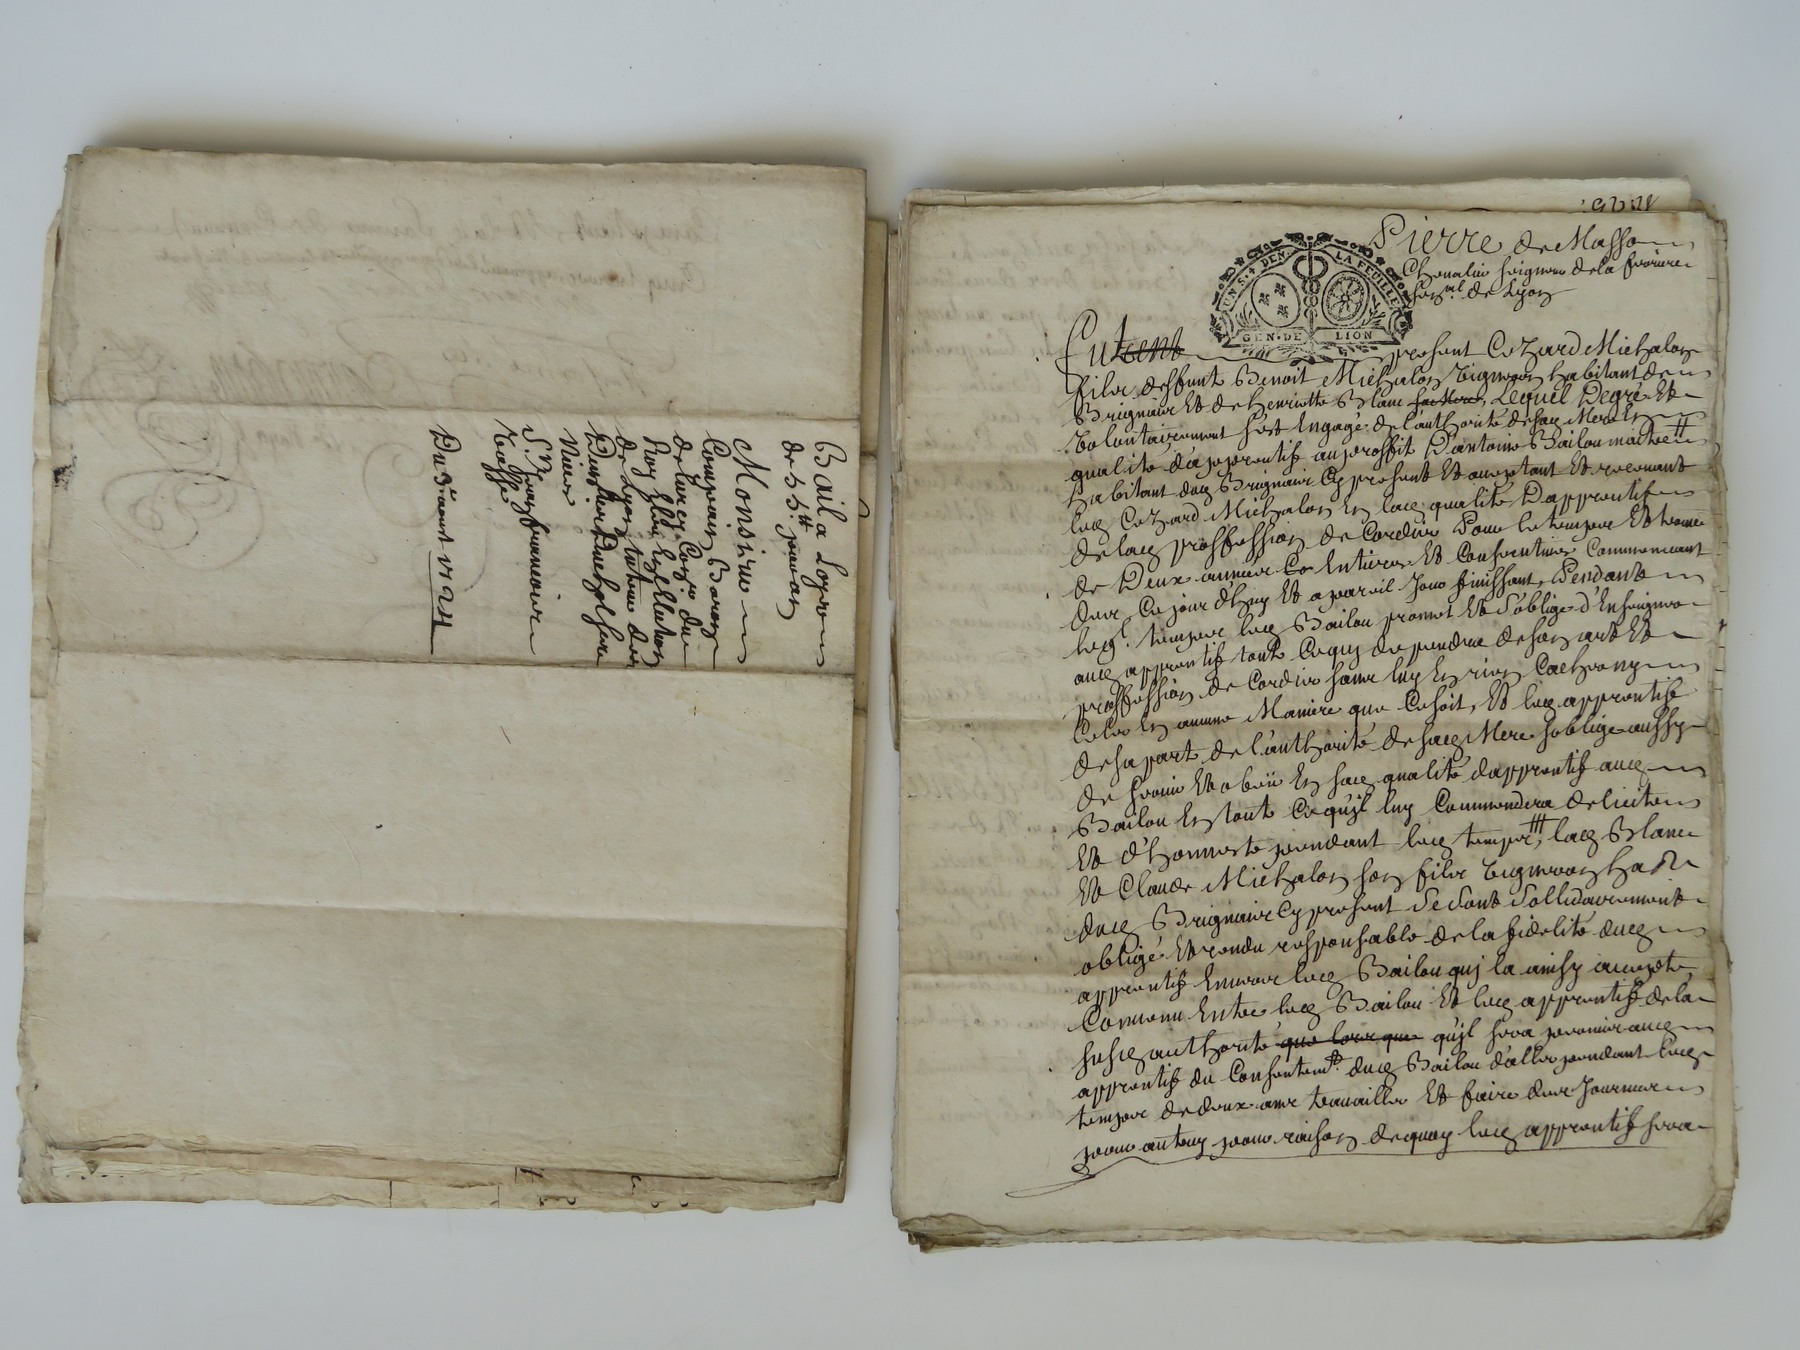 Bail a Loyer
de 55ᵗᵗ par an
Monsieur
Compain Baron
de Con.er du
Roy
de Lyon
Du 3e aout 1724
Pierre de Masso
Chevalier seigneur de la ferriere
sen.al de Lyon
UN S. 4 DEN. LA FEUILLE
GEN. DE LION
Fut present Cezard Michalon
fils deffunt Benoit Michalon vigneron habitant de
Brignais Et de henriette Blanc Lequel Degré Et
volontairement sest Engagé de l'authorité de sad. Mere En
qualité d'apprentif au proffit D'antoine Bailou maitre
habitant dud. Brignais Cy present Et acceptant Et recevant
led. Cezard Michalon En lad. qualité D'apprentif
de lad. proffession de Cordier Pour le temps et terme
de Deux années Entieres Et Consecutives Commencant
des Ce jour d'huy Et a pareil Jour finissant, Pendant
leq.l temps led. Bailou promet Et S'oblige d'Enseigner
aud. apprentif tout Ce quy depandra de son art Et
proffession de Cordier sans luy En rien Cacher ny
Celer En aucune Maniere que Ce soit, Et led. apprentif
de sa part de l'authorité de sad. Mere s'oblige aussy
de servir Et obeir En sad. qualité d'apprentif aud.
Bailou En tout Ce qu'jl luy Commandera de licite
Et d'honneste pendant led. temps, lad. Blanc
Et Claude Michalon son fils vigneron hab.
dud. Brignais Cy present Se Sont Sollidairement
obligé Et rendu responsable de la fidelité dud.
apprentif Envers led. Bailou quj la ainsy accepté
Convenu Entre led. Bailou Et led. apprentif de la
susd. authorité que lors que qu'jl sera permis aud.
apprentif du Consentem.t dud. Bailou d'aller pendant led.
temps de deux ans travailler Et faire des Journées
pour autruy pour raison de quoy led. apprentif sera